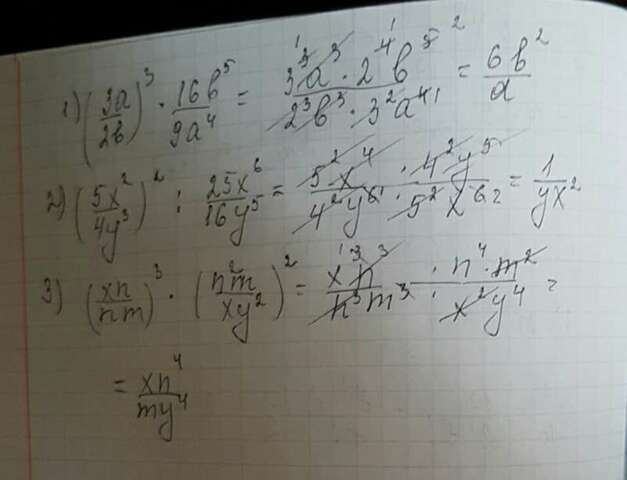 1) (3a/2b)³ · 16b⁵/9a⁴ = 3³a³ · 2⁴b⁵/2³b³ · 3²a⁴ = 6b²/a
2) (5x²/4y³)² : 25x⁶/16y⁵ = 5²x⁴/4²y⁶ · 4²y⁵/5²x⁶ = 1/yx²
3) (xn/nm)³ · (n²m/xy²)² = x³n³/n³m³ · n⁴·m²/x²y⁴ =
= xn⁴/my⁴